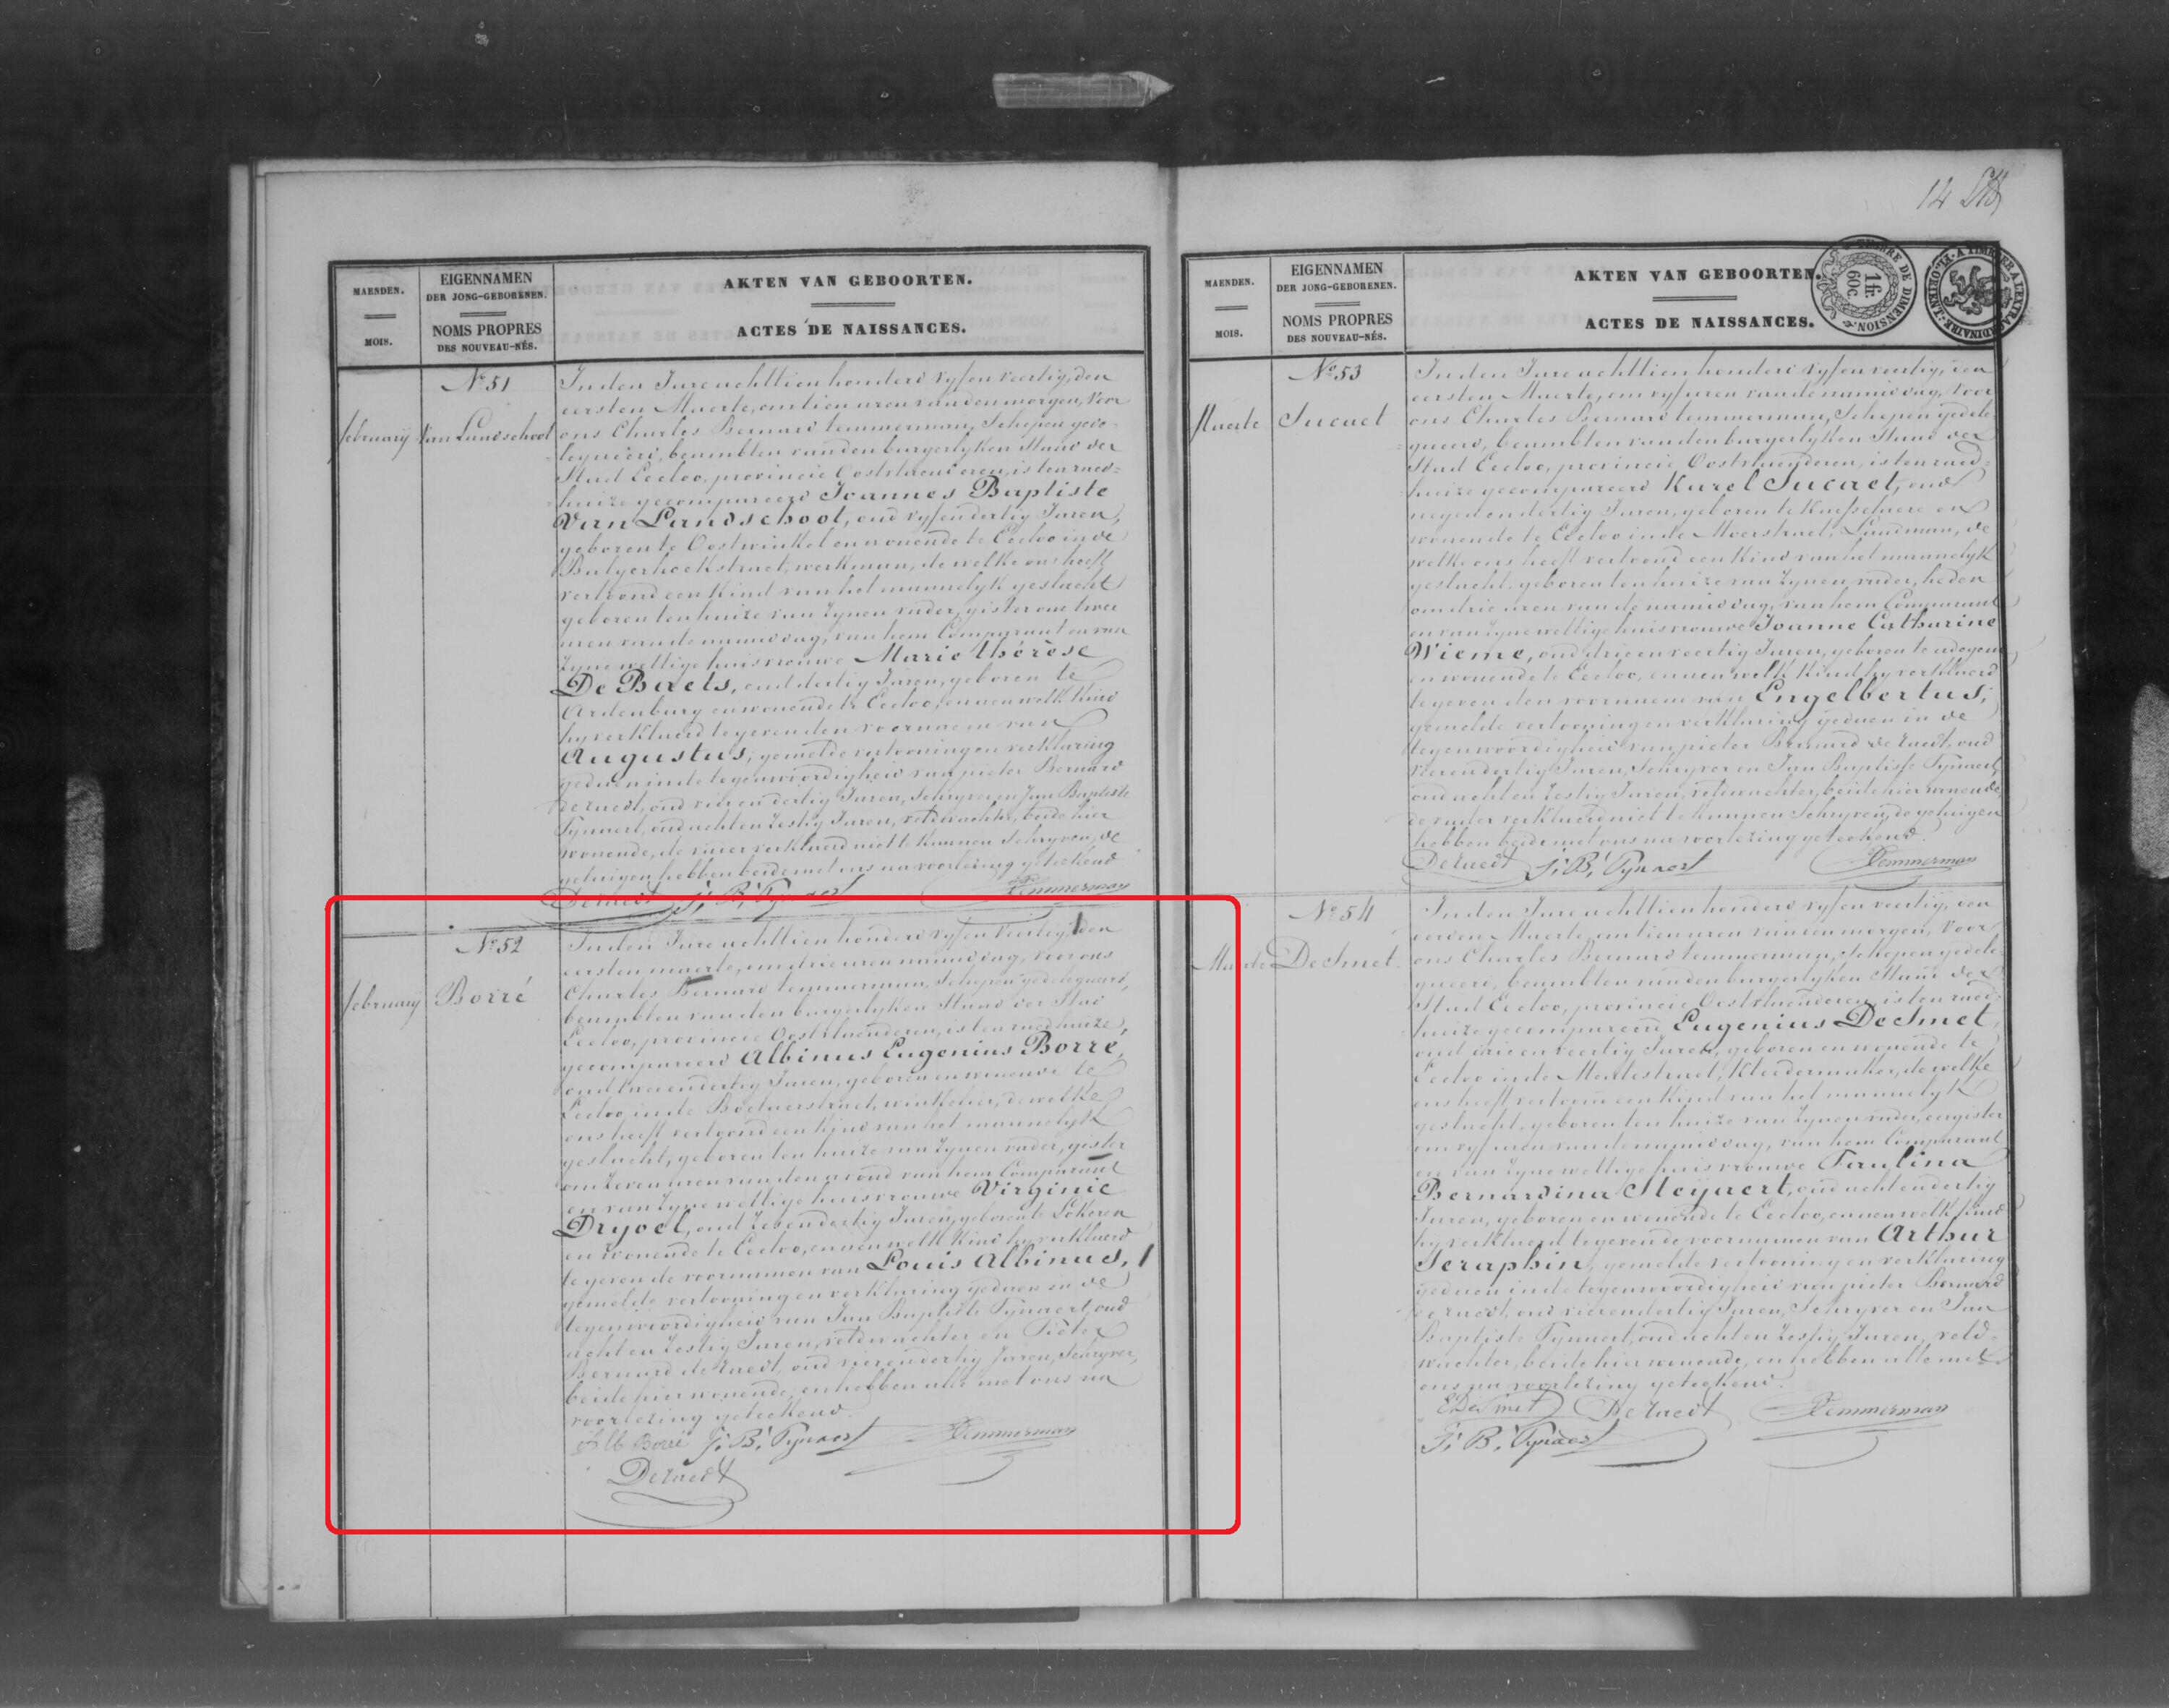 14
MAENDEN.
MOIS.
EIGENNAMEN
DER JONG-GEBORENEN.
NOMS PROPRES
DES NOUVEAU-NÉS.
AKTEN VAN GEBOORTEN.
ACTES DE NAISSANCES.
No 51
february
Van Landschoot
In den Jare achttien honderd vyf en veertig, den
eersten Maerte, om tien uren van den morgen, voor
ons Charles Bernard temmerman, Schepen gede-
legueerd, beambten van den burgerlyken Stand der
Stad Eecloo, provincie Oostvlaenderen, is ten raed-
huize gecompareerd Joannes Baptiste
Van Landschoot, oud vyf en dertig Jaren,
geboren te Oostwinkel en wonende te Eecloo in de
Balgerhoekstraet, werkman, de welke ons heeft
vertoond een Kind van het mannelyk geslacht
geboren ten huize van zynen vader, gister om twee
uren van de namiddag, van hem Comparant en van
zyne wettige huisvrouwe Marie thérèse
De Baets, oud dertig Jaren, geboren te
Ardenburg en wonende te Eecloo, en aen welk Kind
hy verklaerd te geven den voornaem van
Augustus; gemelde vertooning en verklaring
gedaen in de tegenwoordigheid van pieter Bernard
de raedt, oud vier en dertig Jaren, Schryver en Jan Baptiste
Tynaert, oud acht en zestig Jaren, veldwachter, beide hier
wonende, de vader verklaerd niet te kunnen Schryven, de
getuigen hebben beide met ons na voorlezing geteekend
Deraedt J. B. Tynaert Temmerman
No 52
february
Borré
In den Jare achttien honderd vyf en veertig, den
eersten maerte, om drie uren namiddag, voor ons
Charles Bernard temmerman, Schepen gedelegueerd,
beambten van den burgerlyken Stand der Stad
Eecloo, provincie Oostvlaenderen, is ten raedhuize,
gecompareerd Albinus Eugenius Borré,
oud twee en dertig Jaren, geboren en wonende te
Eecloo in de Boelaerstraet, winkelier, de welke
ons heeft vertoond een kind van het mannelyk
geslacht, geboren ten huize van zynen vader, gister
om zeven uren van den avond van hem Comparant
en van zyne wettige huisvrouwe Virginie
Dryoel, oud zes en dertig Jaren, geboren te Lokeren
en wonende te Eecloo, en aen welk Kind hy verklaerd
te geven de voornamen van Louis Albinus,
gemelde vertooning en verklaring gedaen in de
tegenwoordigheid van Jan Baptiste Tynaert, oud
acht en zestig Jaren, veldwachter en Pieter
Bernard de raedt, oud vier en dertig Jaren, Schryver,
beide hier wonende, en hebben alle met ons na
voorlezing geteekend.
Alb Borré J. B. Tynaert Temmerman
Deraedt
MAENDEN.
MOIS.
EIGENNAMEN
DER JONG-GEBORENEN.
NOMS PROPRES
DES NOUVEAU-NÉS.
AKTEN VAN GEBOORTEN.
ACTES DE NAISSANCES.
TIMBRE DE DIMENSION
1 fr.
60c.
No 53
Maerte
Sucaet
In den Jare achttien honderd vyf en veertig, den
eersten Maerte, om vyf uren van de namiddag, voor
ons Charles Bernard temmerman, Schepen gedele-
gueerd, beambten van den burgerlyken Stand der
Stad Eecloo, provincie Oostvlaenderen, is ten raed-
huize gecompareerd Karel Sucaet, oud
negen en dertig Jaren, geboren te Kaprschaere en
wonende te Eecloo in de Moerstraet, Landman, de
welke ons heeft vertoond een Kind van het mannelyk
geslacht, geboren ten huize van zynen vader, heden
om drie uren van de namiddag, van hem Comparant
en van zyne wettige huisvrouwe Joanne Catharine
Wieme, oud drie en veertig Jaren, geboren te adegem
en wonende te Eecloo, en aen welk Kind hy verklaerd
te geven den voornaem van Engelbertus;
gemelde vertooning en verklaring gedaen in de
tegenwoordigheid van pieter Bernard de raedt, oud
vier en dertig Jaren, Schryver en Jan Baptiste Tynaert,
oud acht en zestig Jaren, veldwachter, beide hier wonende
de vader verklaerd niet te kunnen Schryven, de getuigen
hebben beide met ons na voorlezing geteekend.
Deraedt J. B. Tynaert Temmerman
No 54
Maerte
De Smet
In den Jare achttien honderd vyf en veertig, den
Maerte, om tien uren van den morgen, voor
ons Charles Bernard temmerman, Schepen gedele-
gueerd, beambten van den burgerlyken Stand der
Stad Eecloo, provincie Oostvlaenderen, is ten raed-
huize gecompareerd Eugenius De Smet,
oud drie en veertig Jaren, geboren en wonende te
Eecloo in de Molestraet, Kleedermaker, de welke
ons heeft vertoond een Kind van het mannelyk
geslacht, geboren ten huize van zynen vader, eergister
om vyf uren van de namiddag, van hem Comparant
en van zyne wettige huisvrouwe Paulina
Bernardina Steyaert, oud acht en dertig
Jaren, geboren en wonende te Eecloo, en aen welk Kind
hy verklaerd te geven de voornamen van Arthur
Seraphin, gemelde vertooning en verklaring
gedaen in de tegenwoordigheid van pieter Bernard
de raedt, oud vier en dertig Jaren, Schryver en Jan
Baptiste Tynaert, oud acht en zestig Jaren, veld-
wachter, beide hier wonende, en hebben alle met
ons na voorlezing geteekend.
E De Smet Deraedt Temmerman
J. B. Tynaert